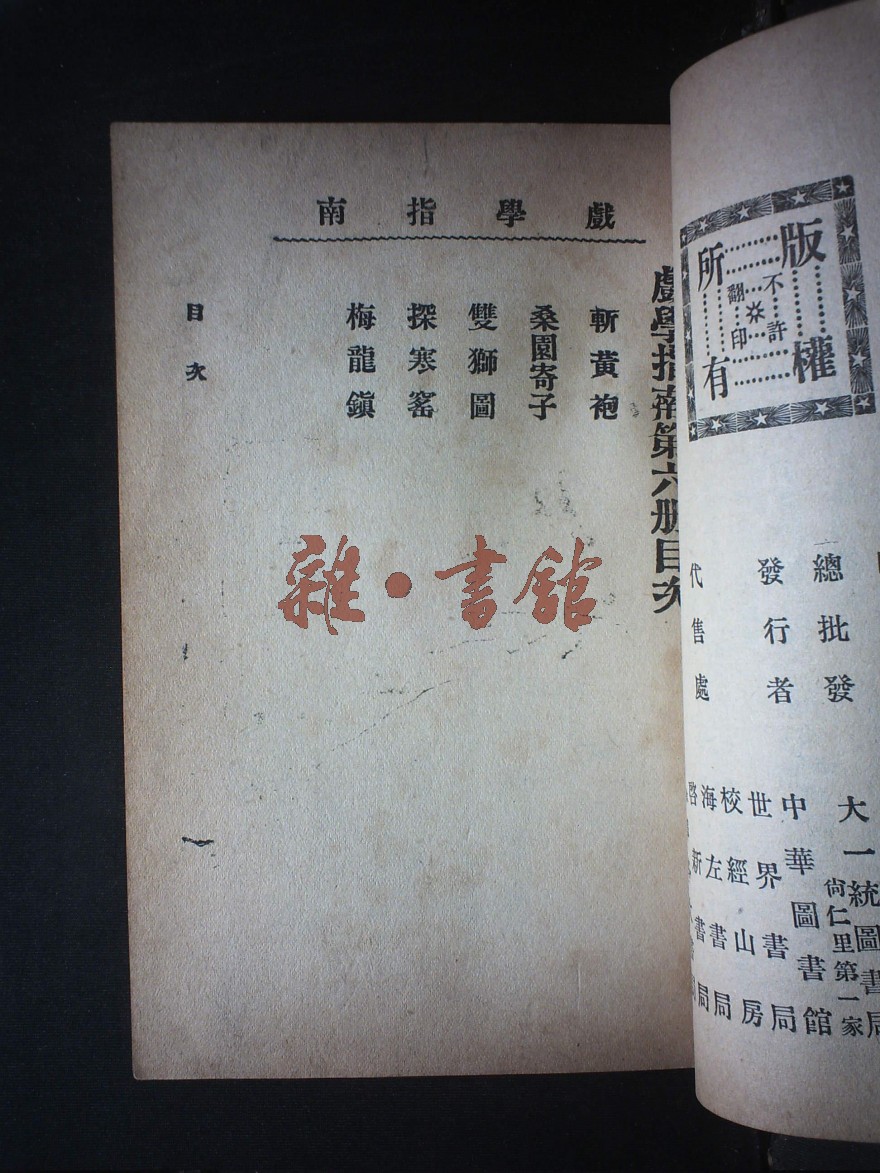 版權所有
不許翻印
總批發
發行者
代售處
大一統圖書局
尚仁里第一家
中華圖書館
世界書局
校經山房
海左書局
新書局
戲學指南
戲學指南第六册目次
斬黃袍
桑園寄子
雙獅圖
探寒窰
梅龍鎭
目次
一
雜·書館